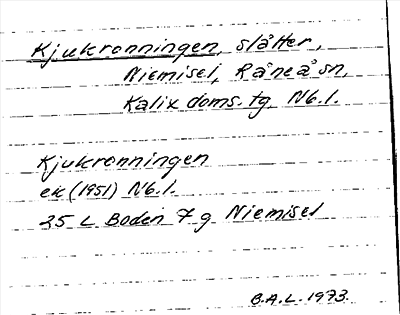 Kjukronningen, slåtter,
Niemisel, Råneå sn,
Kalix doms. tg. Nb. l.
Kjukronningen
ek (1951) Nb. l.
25 L Boden 7 g Niemisel
B.A.L. 1973.